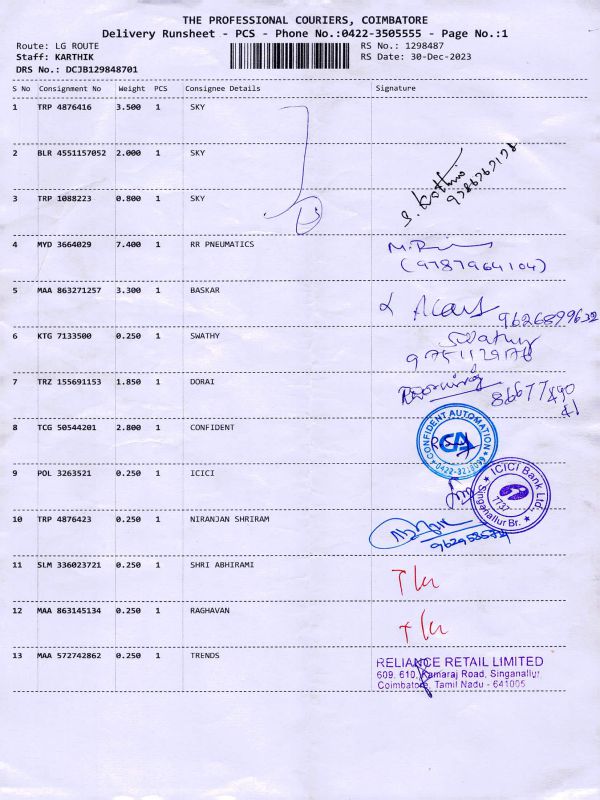 THE PROFESSIONAL COURIERS, COIMBATORE
Delivery Runsheet - PCS - Phone No.:0422-3505555 - Page No.:1
Route: LG ROUTE RS No.: 1298487
Staff: KARTHIK RS Date: 30-Dec-2023
DRS No.: DCJB129848701
S No Consignment No Weight PCS Consignee Details Signature
1 TRP 4876416 3.500 1 SKY
2 BLR 4551157052 2.000 1 SKY
3 TRP 1088223 0.800 1 SKY
4 MYD 3664029 7.400 1 RR PNEUMATICS
(9787964104)
5 MAA 863271257 3.300 1 BASKAR
9626899632
6 KTG 7133500 0.250 1 SWATHY Swathy
7 TRZ 155691153 1.850 1 DORAI
8667749041
8 TCG 50544201 2.800 1 CONFIDENT CONFIDENT AUTOMATION
CA
9 POL 3263521 0.250 1 ICICI ICICI Bank Ltd.,
Singanallur Br.
10 TRP 4876423 0.250 1 NIRANJAN SHRIRAM
11 SLM 336023721 0.250 1 SHRI ABHIRAMI
12 MAA 863145134 0.250 1 RAGHAVAN
13 MAA 572742862 0.250 1 TRENDS RELIANCE RETAIL LIMITED
609, 610, Kamaraj Road, Singanallur,
Coimbatore, Tamil Nadu - 641005